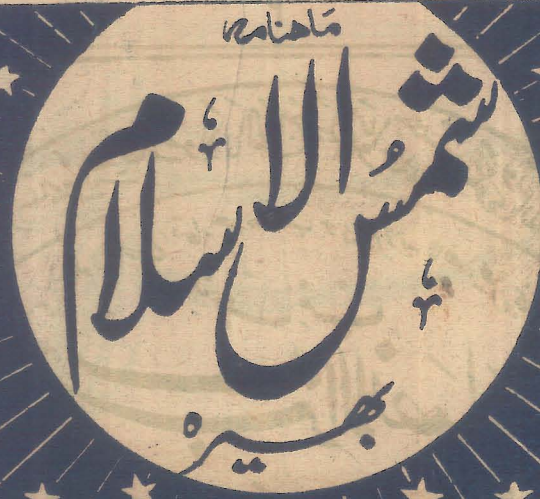 ماهنامہ
شمس الاسلام
بھیرہ